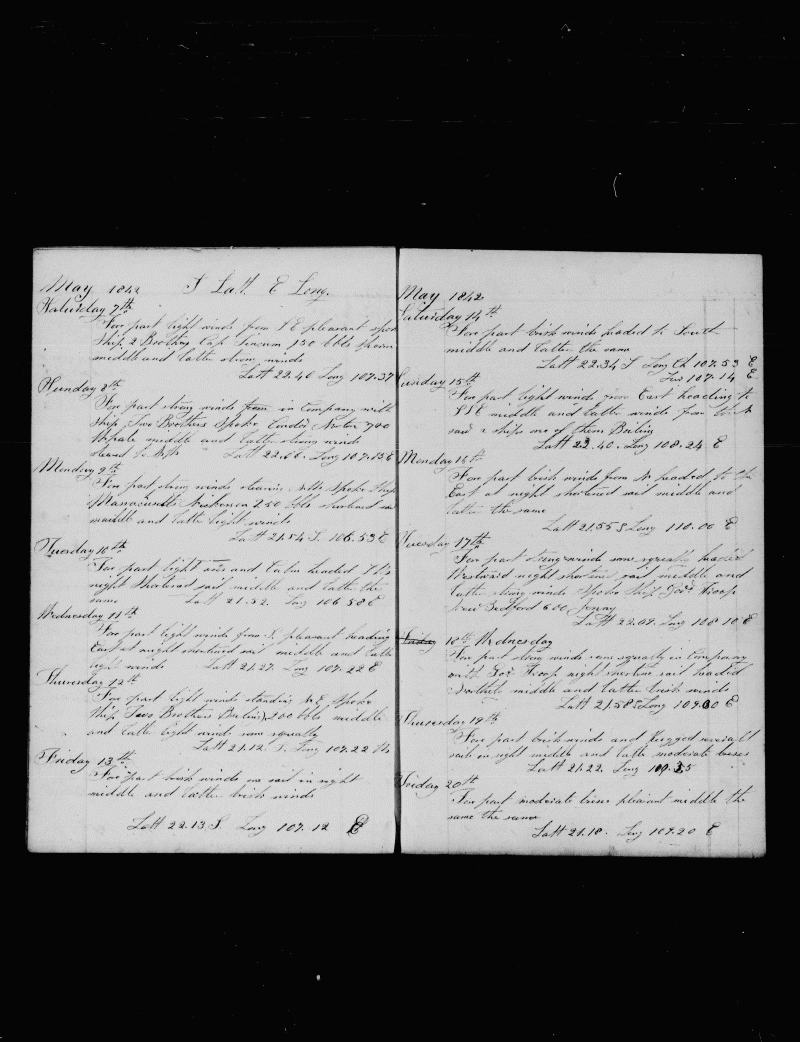 May 1842 S Latt. E Long.
Saturday 7th
For part light winds from S E pleasant spok
Ship 2 Brothers Cap 150 bbls sperm
middle and latter strong winds
Latt 22.40 Long 107.37
Sunday 8th
For part strong winds from in Company with
Ship Two Brothers Spoke 700
Whale middle and latter strong winds
Latt 22.06. Long 107.15 E
Monday 9th
For part strong winds Spoke Ship
250 bbls
middle and latter light winds
Latt 21.54 S. 106.53 E
Tuesday 10th
For part light airs and Calm headed
night Shortened sail middle and latter the
same Latt 21.32. Long 106.58 E
Wednesday 11th
For part light winds from S. pleasant heading
East at night shortened sail middle and latte
light winds Latt 21.27. Long 107.22 E
Thursday 12th
For part light winds standing N E Spoke
Ship Two Brothers 200 bbls middle
and latter light winds some squally
Latt 21.12. S. Long 107.22
Friday 13th
For part brisk winds one sail in sight
middle and latter brisk winds
Latt 22.13 S. Long 107.12 E
May 1842
Saturday 14th
For part brisk winds headed to South
middle and latter the same
Latt 22.34 S Long Ch 107.53 E
107.14 E
Sunday 15th
For part light winds from East heading to
SSE middle and latter winds from
saw 2 ships one of them Boiling
Latt 22.40. Long 108.24 E
Monday 16th
For part brisk winds from N headed to the
East at night shortened sail middle and
latter the same
Latt 21.55 S Long 110.00 E
Tuesday 17th
For part strong winds some squally headed
Westward night shortened sail middle and
latter strong winds Spoke Ship Gov. Troop
New Bedford 600
Latt 22.09. Long 108.10 E
Friday 18th Wednesday
For part strong winds some squally in Company
with Gov Troop night shortened sail headed
middle and latter brisk winds
Latt 21.58 S Long 109.00 E
Thursday 19th
For part brisk winds and Rugged
sail in sight middle and latte moderate breses
Latt 21.22. Long 109.35
Friday 20th
For part moderate breses pleasant middle the
same the same
Latt 21.18. Long 109.20 E